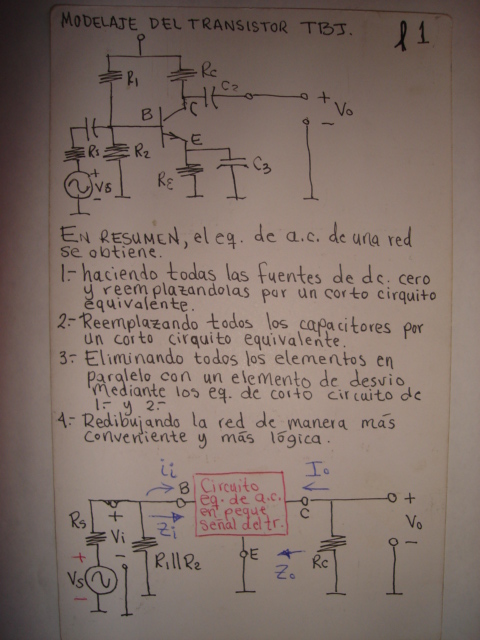 MODELAJE DEL TRANSISTOR TBJ.
l1
R1
Rc
C2
B
C
+
Vo
-
E
Rs
R2
RE
C3
+
Vs
-
EN RESUMEN, el eq. de a.c. de una red
se obtiene.
1.- haciendo todas las fuentes de dc. cero
y reemplazandolas por un corto cirquito
equivalente.
2.- Reemplazando todos los capacitores por
un corto cirquito equivalente.
3.- Eliminando todos los elementos en
paralelo con un elemento de desvio
Mediante los eq. de corto circuito de
1.- y 2.-
4.- Redibujando la red de manera más
conveniente y más lógica.
ii
B
Circuito
eq. de a.c.
en peque
señal del tr.
Io
C
+
Vo
-
Rs
+
Vi
-
Zi
R1||R2
E
Zo
Rc
+
Vs
-